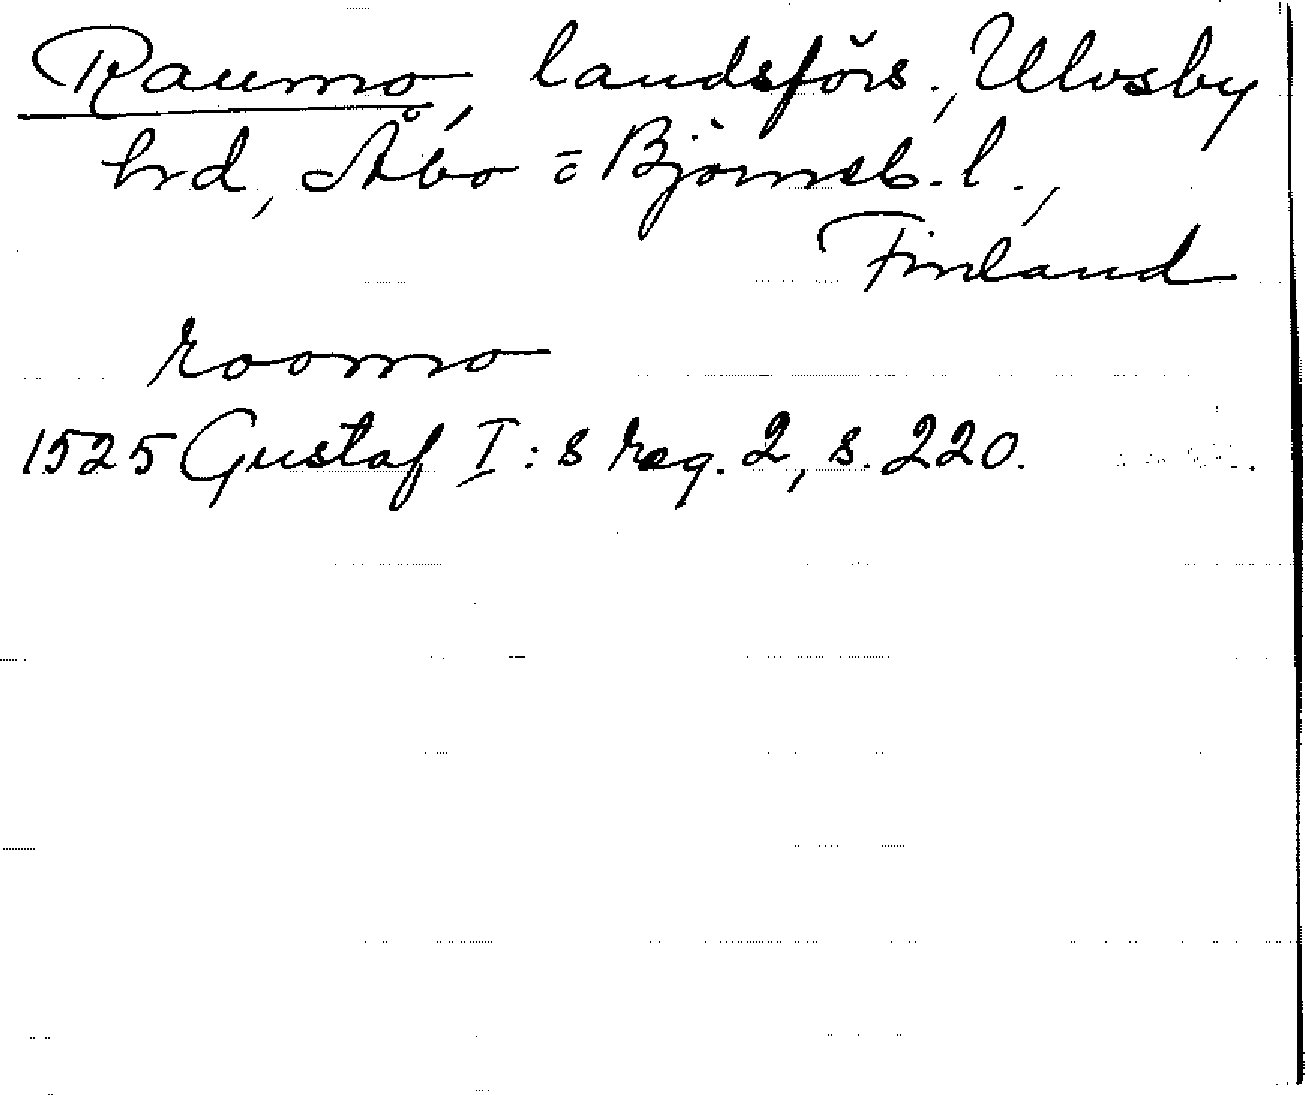 Raumo, landsförs., Ulvsby
hrd, Åbo o Björneb. l.,
Finland
roomo
1525 Gustaf I:s reg. 2, s. 220.